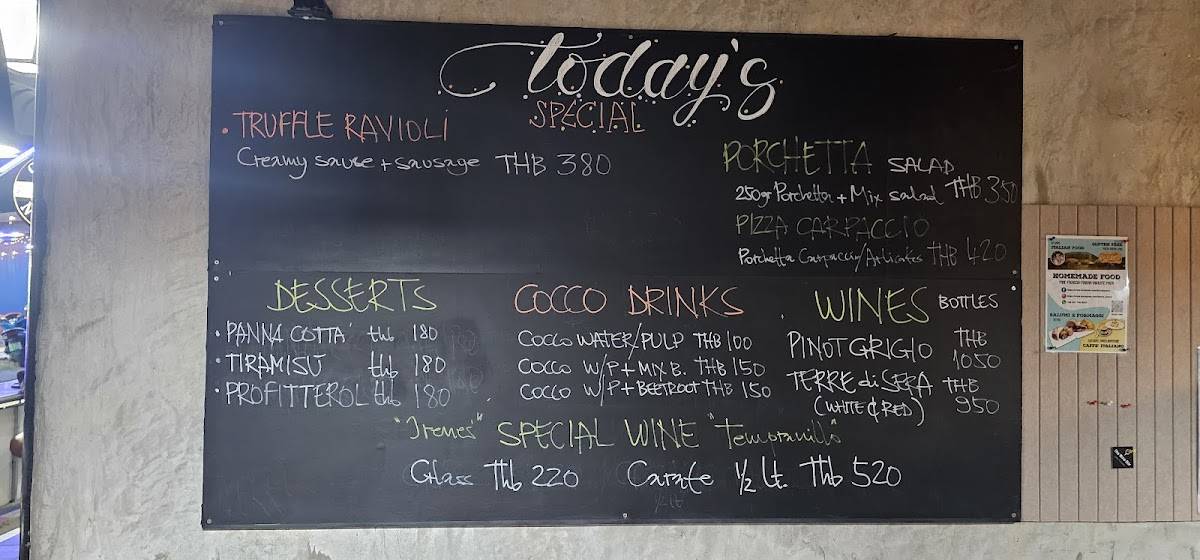 today's
SPECIAL
• TRUFFLE RAVIOLI
Creamy sauce + sausage THB 380
PORCHETTA SALAD
250gr Porchetta + Mix salad THB 350
PIZZA CARPACCIO
Porchetta Carpaccio/Artichokes THB 420
DESSERTS
• PANNA COTTA' thb 180
• TIRAMISU thb 180
• PROFITTEROL thb 180
COCCO DRINKS
COCCO WATER/PULP THB 100
COCCO W/P + MIX B. THB 150
COCCO W/P + BEETROOT THB 150
WINES BOTTLES
PINOT GRIGIO THB 1050
TERRE di SERA THB 950
(WHITE & RED)
"Irenes" SPECIAL WINE "Tempranillo"
Glass Thb 220 Carafe 1/2 lt. Thb 520
ITALIAN FOOD
GLUTEN FREE
HOMEMADE FOOD
SALUMI & FORMAGGI
CAFFE' ITALIANO